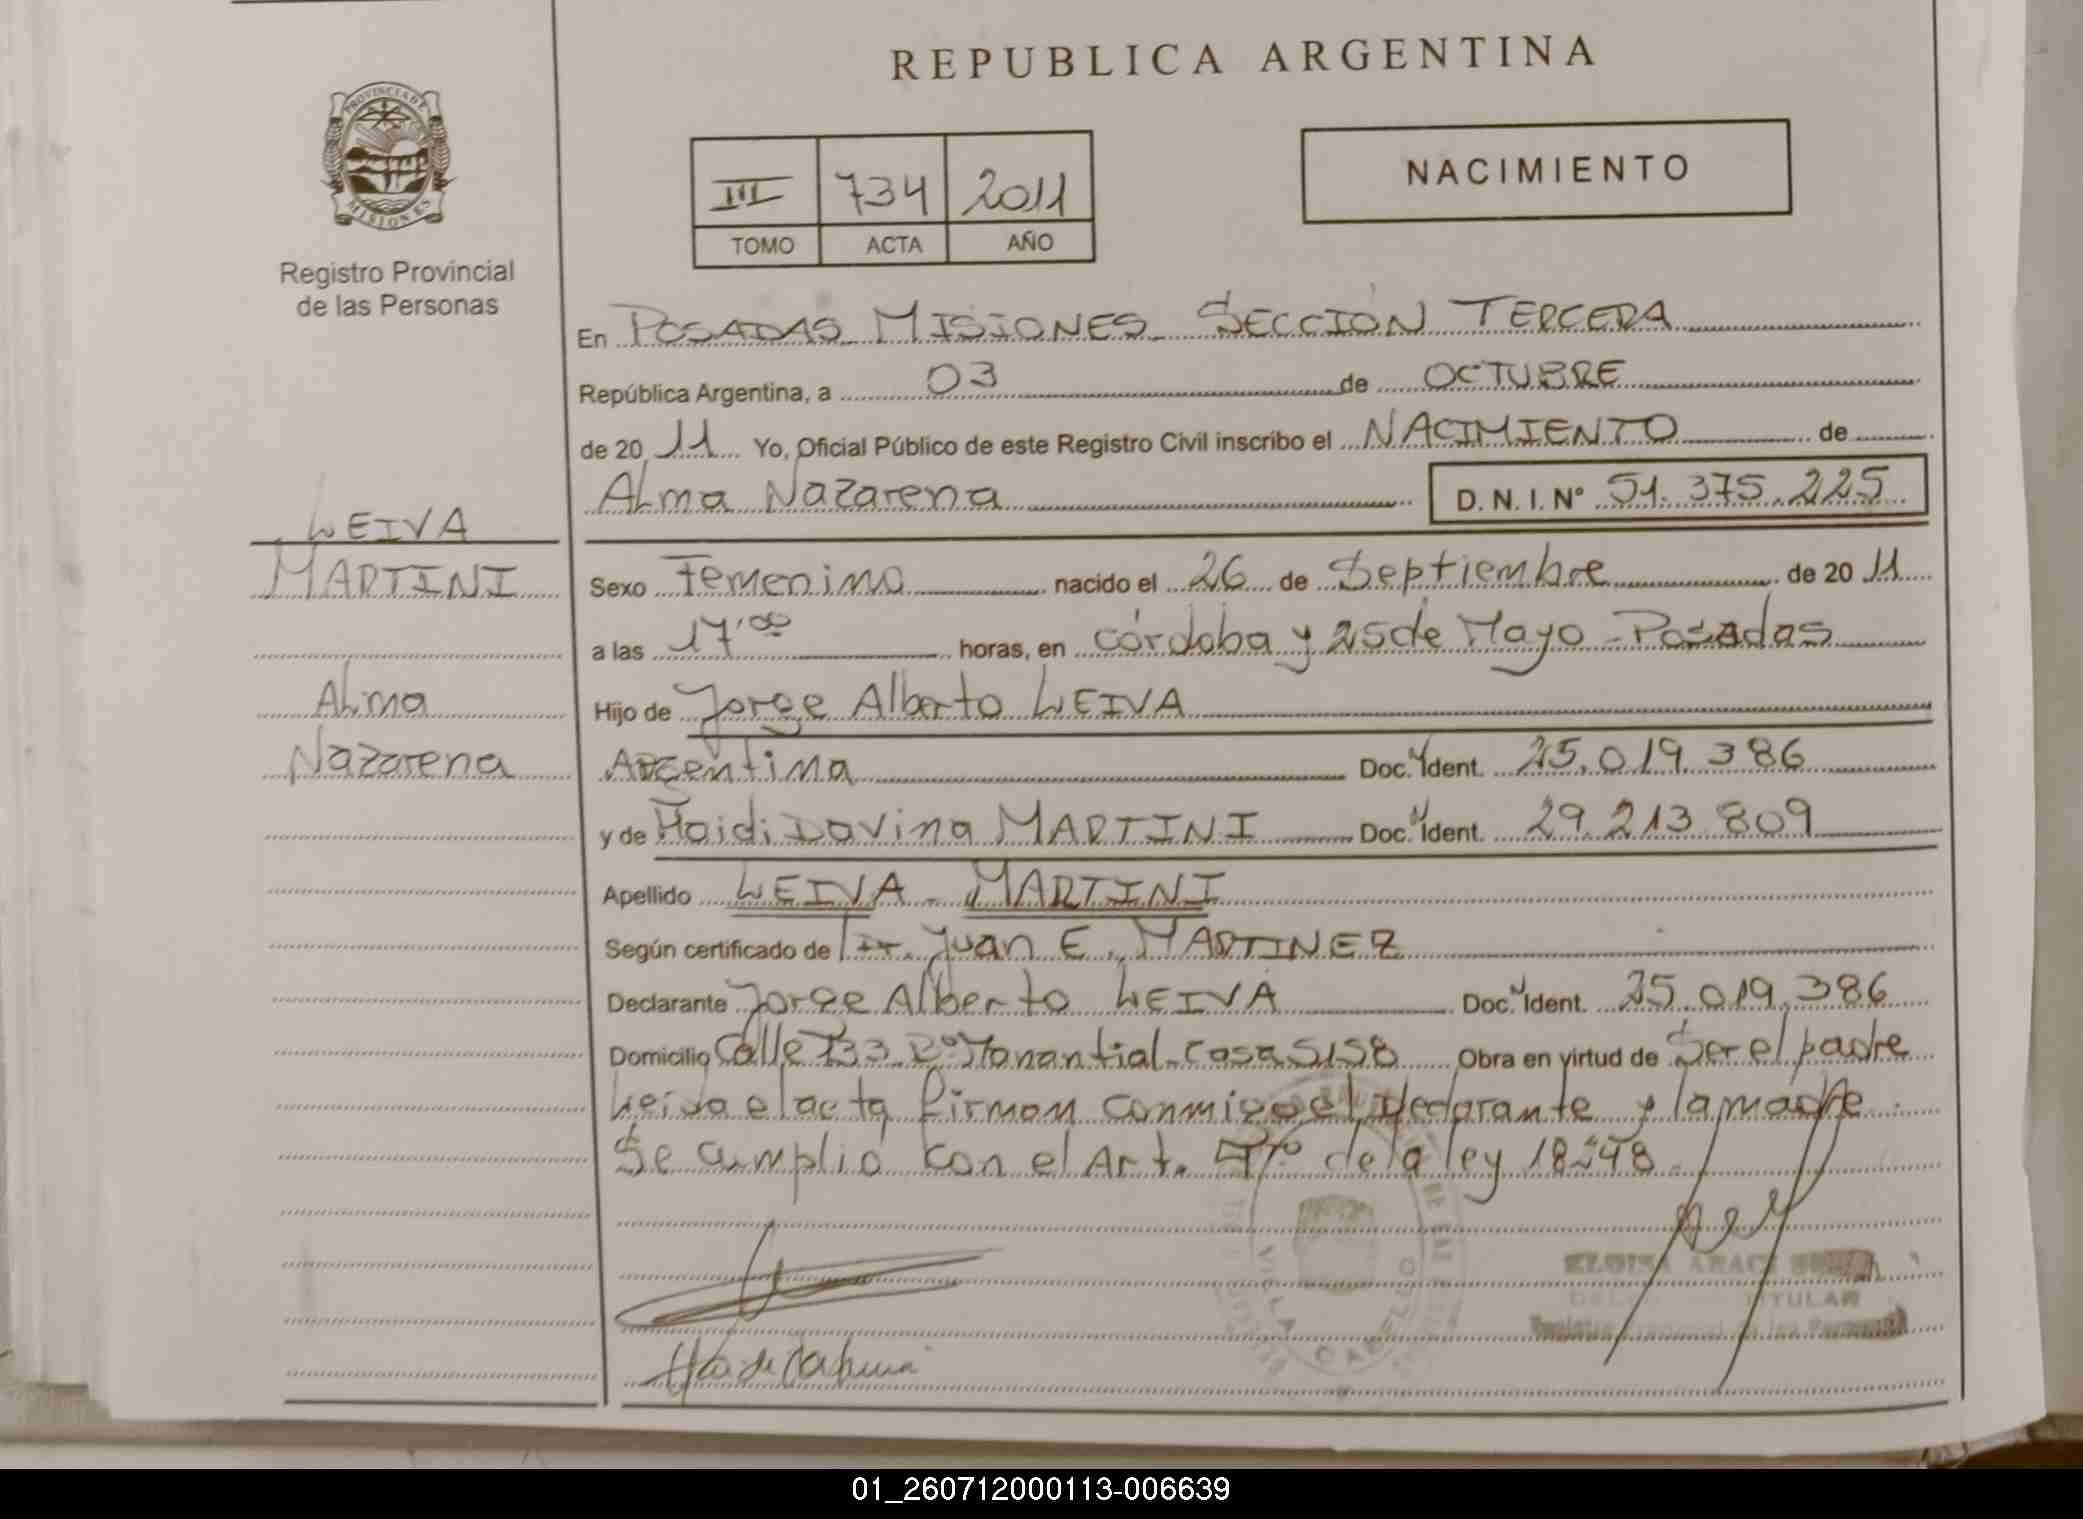 REPUBLICA ARGENTINA
PROVINCIA DE
MISIONES
Registro Provincial
de las Personas
III 734 2011
TOMO ACTA AÑO
NACIMIENTO
En POSADAS MISIONES SECCIÓN TERCERA
República Argentina, a 03 de OCTUBRE
de 20 11 Yo, Oficial Público de este Registro Civil inscribo el NACIMIENTO de
Alma Nazarena D. N. I. Nº 51.375.225
LEIVA
MARTINI
Alma
Nazarena
Sexo Femenino nacido el 26 de Septiembre de 20 11
a las 17'00 horas, en Córdoba y 25 de Mayo - Posadas
Hijo de Jorge Alberto LEIVA
Argentina Doc. Ident. 25.019.386
y de Haidi Davina MARTINI Doc. Ident. 29.213.809
Apellido LEIVA - MARTINI
Según certificado de Dr. Juan E. MARTINEZ
Declarante Jorge Alberto LEIVA Doc. Ident. 25.019.386
Domicilio Calle 133 Bº Manantial Casa 5158 Obra en virtud de Ser el padre
Leida el acta firman conmigo el declarante y la madre
Se cumplió con el Art. de la ley 18248
VILLA CABELLO
ELOISA ARACI
TITULAR
01_260712000113-006639